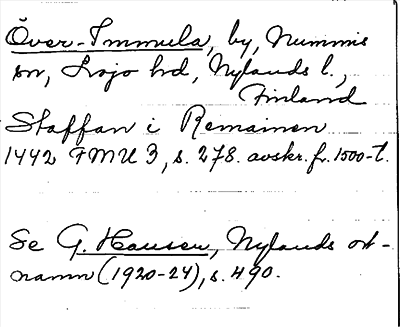 Över-Immula, by, Nummis
sn, Lojo hd, Nylands l.,
Finland
Staffan i Remainen
1442 FMU 3, s. 278. avskr. fr. 1500-t.
Se G. Hausen, Nylands ort-
namn (1920-24), s. 490.